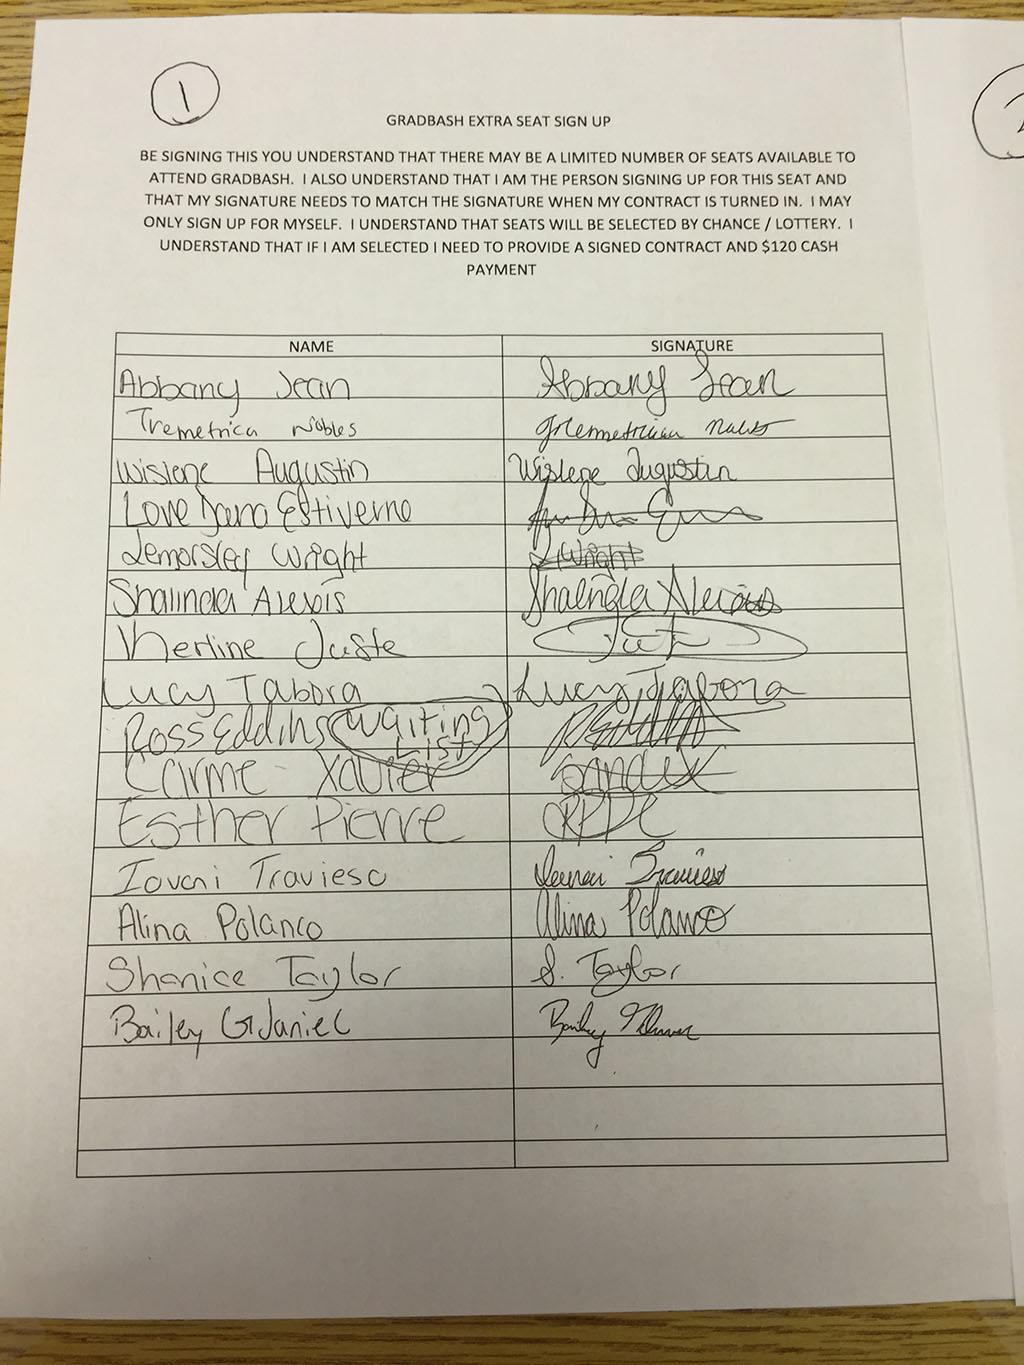 1
GRADBASH EXTRA SEAT SIGN UP
BE SIGNING THIS YOU UNDERSTAND THAT THERE MAY BE A LIMITED NUMBER OF SEATS AVAILABLE TO
ATTEND GRADBASH. I ALSO UNDERSTAND THAT I AM THE PERSON SIGNING UP FOR THIS SEAT AND
THAT MY SIGNATURE NEEDS TO MATCH THE SIGNATURE WHEN MY CONTRACT IS TURNED IN. I MAY
ONLY SIGN UP FOR MYSELF. I UNDERSTAND THAT SEATS WILL BE SELECTED BY CHANCE / LOTTERY. I
UNDERSTAND THAT IF I AM SELECTED I NEED TO PROVIDE A SIGNED CONTRACT AND $120 CASH
PAYMENT
NAME SIGNATURE
Abbany Jean Abbany Jean
Tremetrica Nobles
Wislene Augustin Wislene Augustin
Love Dana Estiverne
Wright Wright
Shalinda Alexis
Juste
Lucy Tabora Lucy Tabora
Ross Eddins Waiting List
Carme Xavier
Esther Pierre
Iovani Travieso
Alina Polanco Alina Polanco
Shanice Taylor S. Taylor
Bailey Bailey